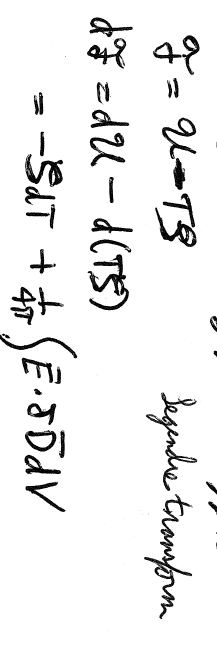 ℱ = 𝒰 - TS Legendre transform
dℱ = d𝒰 - d(TS)
= -SdT + 1/4π ∫ E̅ · δD̅ dV